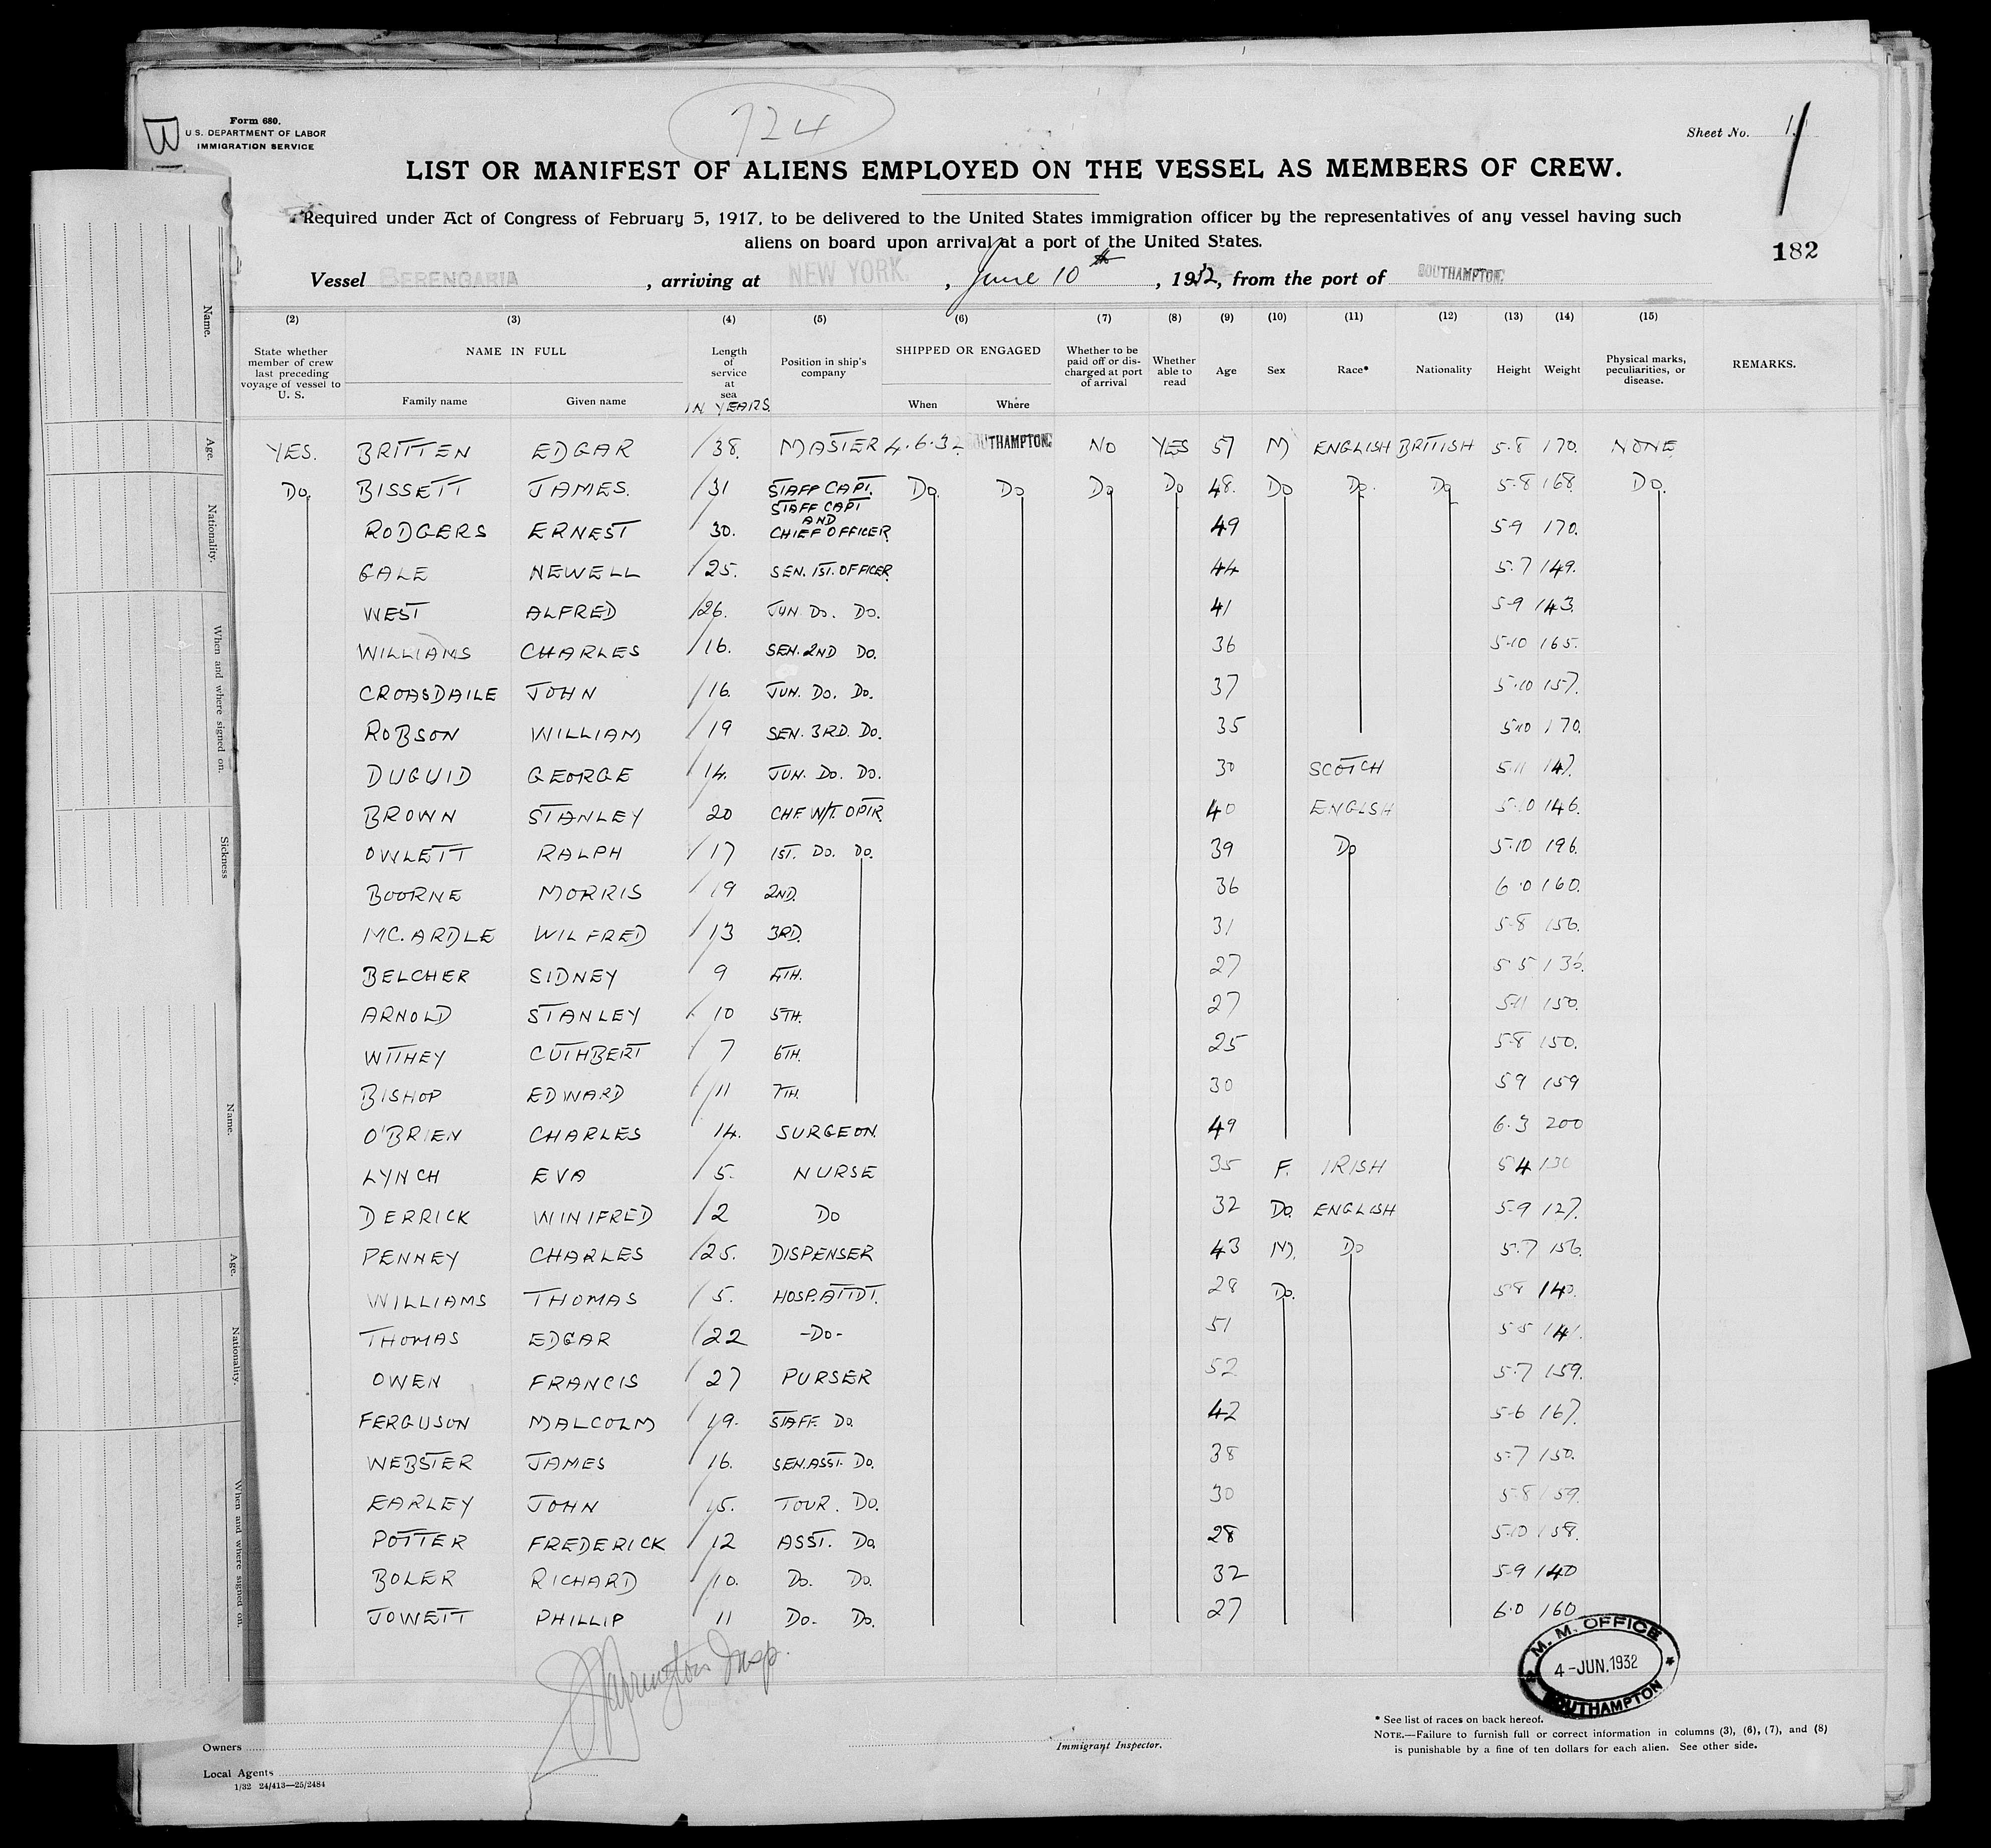 Form 680.
U.S. DEPARTMENT OF LABOR
IMMIGRATION SERVICE
724
Sheet No. 1
1
LIST OR MANIFEST OF ALIENS EMPLOYED ON THE VESSEL AS MEMBERS OF CREW.
Required under Act of Congress of February 5, 1917, to be delivered to the United States immigration officer by the representatives of any vessel having such
aliens on board upon arrival at a port of the United States.
182
Vessel BERENGARIA, arriving at NEW YORK, June 10th, 1932, from the port of SOUTHAMPTON.
(2) (3) (4) (5) (6) (7) (8) (9) (10) (11) (12) (13) (14) (15)
State whether member of crew last preceding voyage of vessel to U. S. NAME IN FULL Family name Given name Length of service at sea IN YEARS. Position in ship's company SHIPPED OR ENGAGED When Where Whether to be paid off or discharged at port of arrival Whether able to read Age Sex Race* Nationality Height Weight Physical marks, peculiarities, or disease. REMARKS.
YES. BRITTEN EDGAR 38. MASTER 4.6.32 SOUTHAMPTON. NO YES 57 M ENGLISH BRITISH 5.8 170. NONE
Do. BISSETT JAMES. 31 STAFF CAPT. Do. Do Do Do 48. Do Do. Do 5.8 168. Do.
RODGERS ERNEST 30. STAFF CAPT AND CHIEF OFFICER 49 5.9 170.
GALE NEWELL 25. SEN. 1ST. OFFICER 44 5.7 149.
WEST ALFRED 26. JUN. Do. Do. 41 5.9 143.
WILLIAMS CHARLES 16. SEN. 2ND Do. 36 5.10 165.
CROASDAILE JOHN 16. JUN. Do. Do. 37 5.10 157.
ROBSON WILLIAM 19 SEN. 3RD. Do. 35 5.10 170.
DUGUID GEORGE 14. JUN. Do. Do. 30 SCOTCH 5.11 147.
BROWN STANLEY 20 CHF. W/T. OPTR. 40 ENGLSH 5.10 146.
OWLETT RALPH 17 1ST. Do. Do. 39 Do 5.10 196.
BOORNE MORRIS 19 2ND. 36 6.0 160.
MC.ARDLE WILFRED 13 3RD. 31 5.8 156.
BELCHER SIDNEY 9 4TH. 27 5.5 136.
ARNOLD STANLEY 10 5TH. 27 5.11 150.
WITHEY CUTHBERT 7 6TH. 25 5.8 150.
BISHOP EDWARD 11 7TH. 30 5.9 159
O'BRIEN CHARLES 14. SURGEON. 49 6.3 200
LYNCH EVA 5. NURSE 35 F. IRISH 5.4 130
DERRICK WINIFRED 2 Do 32 Do. ENGLISH 5.9 127.
PENNEY CHARLES 25. DISPENSER 43 M. Do 5.7 156.
WILLIAMS THOMAS 5. HOSP. ATTDT. 28 Do. 5.8 140.
THOMAS EDGAR 22 -Do- 51 5.5 141.
OWEN FRANCIS 27 PURSER 52 5.7 159.
FERGUSON MALCOLM 19. STAFF. Do. 42 5.6 167.
WEBSTER JAMES 16. SEN. ASST. Do. 38 5.7 150.
EARLEY JOHN 15. TOUR. Do. 30 5.8 159.
POTTER FREDERICK 12 ASST. Do. 28 5.10 158.
BOLER RICHARD 10. Do. Do. 32 5.9 140
JOWETT PHILLIP 11 Do. Do. 27 6.0 160
M. M. OFFICE
4-JUN.1932
SOUTHAMPTON
Insp.
Owners
Local Agents
1/32 24/413—25/2484
Immigrant Inspector.
* See list of races on back hereof.
NOTE.—Failure to furnish full or correct information in columns (3), (6), (7), and (8)
is punishable by a fine of ten dollars for each alien. See other side.
Name.
Age.
Nationality.
When and where signed on.
Sickness
Name.
Age.
Nationality.
When and where signed on.